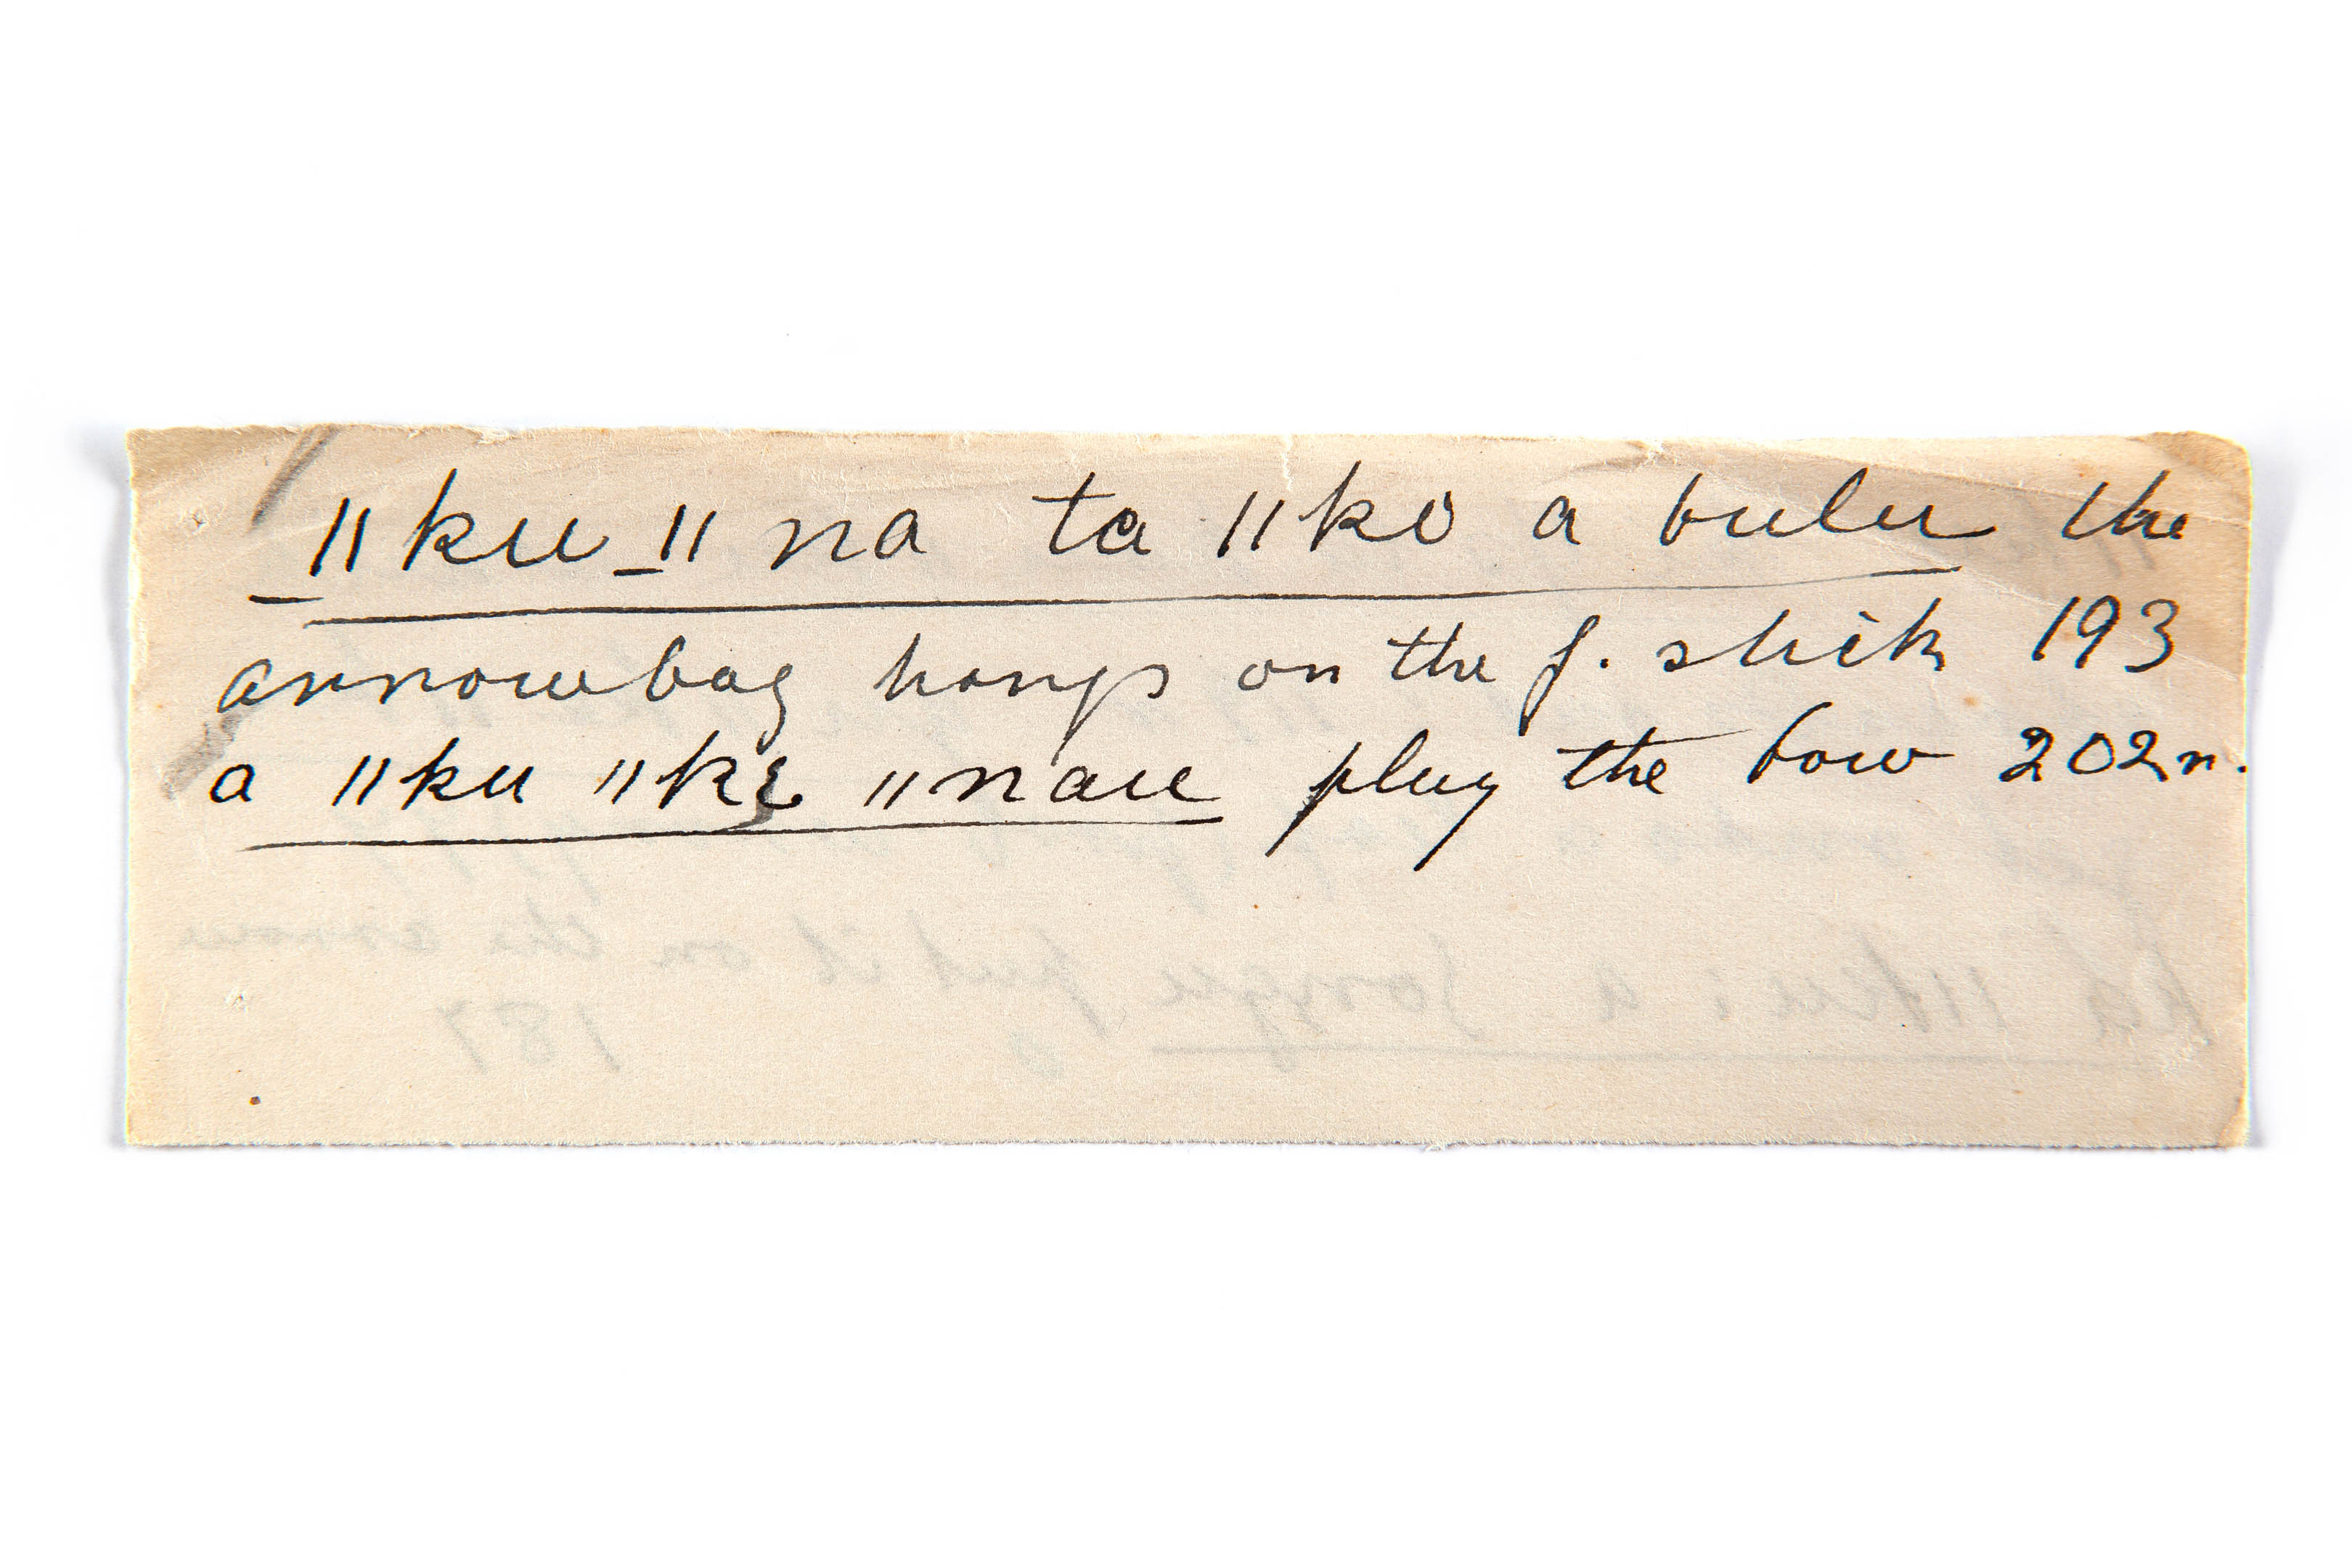 ǁku_ǁna ta ǁko a bulu the
arrowbag hangs on the f. stick 193
a ǁku ǁkę ǁnau plug the bow 202n.